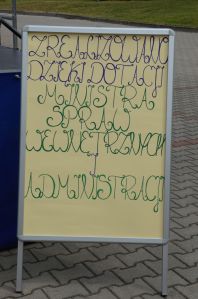 ZREALIZOWANO
DZIĘKI DOTACJI
MINISTRA
SPRAW
WEWNĘTRZNYCH
I
ADMINISTRACJI